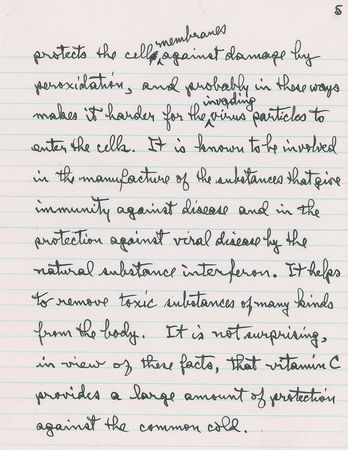 5
protects the cell membranes against damage by
peroxidation, and probably in these ways
makes it harder for the invading virus particles to
enter the cells. It is known to be involved
in the manufacture of the substances that give
immunity against disease and in the
protection against viral disease by the
natural substance interferon. It helps
to remove toxic substances of many kinds
from the body. It is not surprising,
in view of these facts, that vitamin C
provides a large amount of protection
against the common cold.